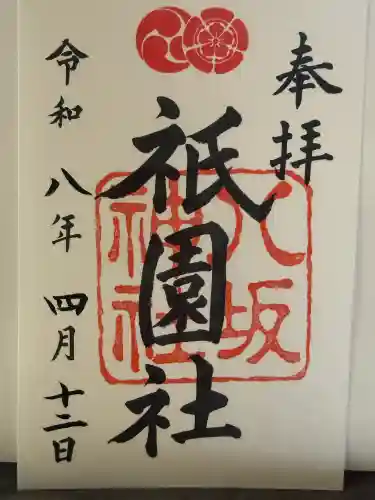 奉拝
八坂
神社
祇園社
令和八年四月十二日